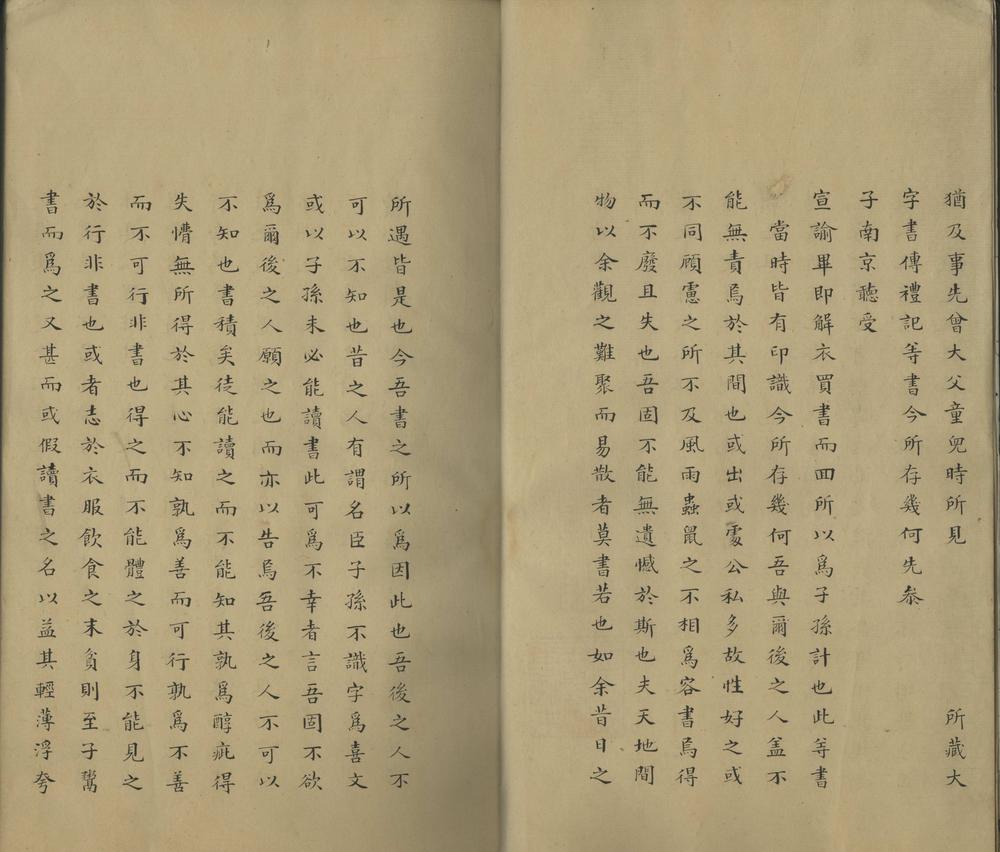 猶及事先曾大父童兒時所見　所藏大
字書傳禮記等書今所存幾何先泰
子南京聽受
宣諭畢即解衣買書而囬所以為子孫計也此等書
當時皆有印識今所存幾何吾與爾後之人盖不
能無責焉於其間也或出或處公私多故性好之或
不同顧慮之所不及風雨蟲鼠之不相為容書焉得
而不廢且失也吾固不能無遺憾於斯也夫天地間
物以余觀之難聚而易散者莫書若也如余昔日之
所遇皆是也今吾書之所以為因此也吾後之人不
可以不知也昔之人有謂名臣子孫不識字為喜文
或以子孫未必能讀書此可為不幸者言吾固不欲
為爾後之人願之也而亦以告焉吾後之人不可以
不知也書積矣徒能讀之而不能知其孰為醇疵得
失懵無所得於其心不知孰為善而可行孰為不善
而不可行非書也得之而不能體之於身不能見之
於行非書也或者志於衣服飲食之末貧則至子鬻
書而為之又甚而或假讀書之名以益其輕薄浮夸